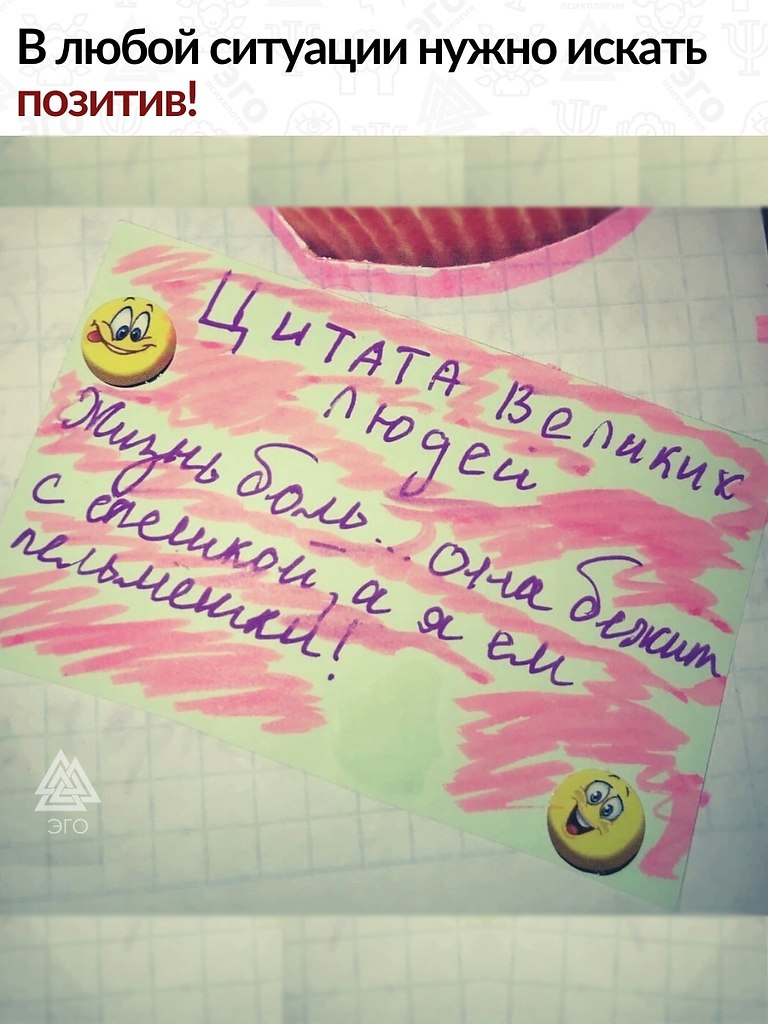 В любой ситуации нужно искать
позитив!
Цитата Великих
людей
Жизнь боль... она бежит
с спешкой, а я ем
пельмешки!
ЭГО